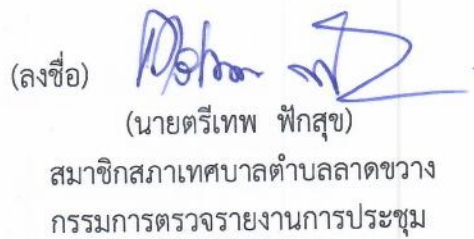 (ลงชื่อ)
(นายตรีเทพ ฟักสุข)
สมาชิกสภาเทศบาลตำบลลาดขวาง
กรรมการตรวจรายงานการประชุม